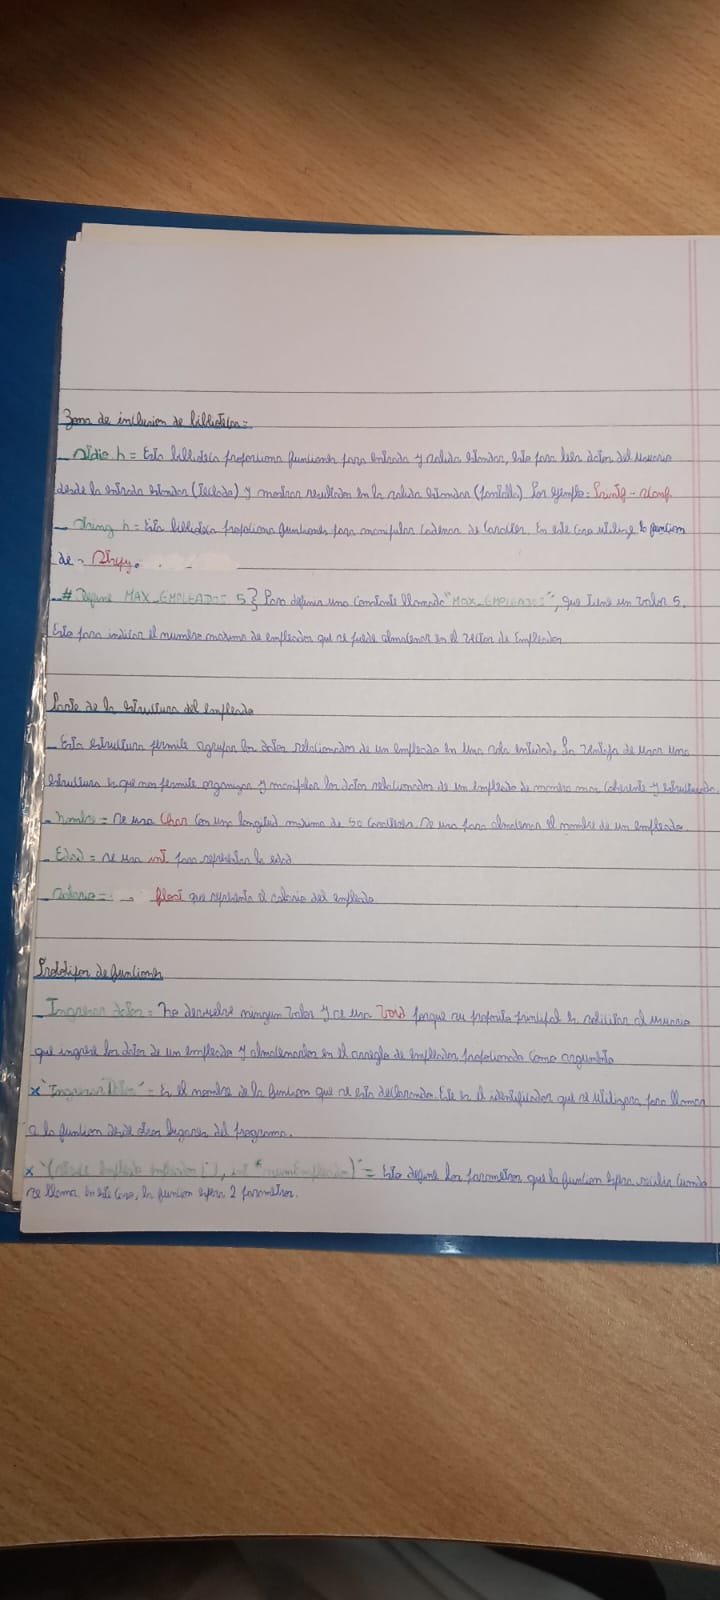 Zona de inclusion de bibliotecas=
_ Stdio h = Esta biblioteca proporciona funciones para entrada y salida estandar, esto para leer datos del usuario
desde la entrada estandar (teclado) y mostrar resultados en la salida estandar (pantalla). Por ejemplo = Printf - Scanf.
_ String h = Esta biblioteca proporciona funciones para manipular cadenas de caracter. En este caso utilize la funcion
de - Strcpy.
_ # Define MAX_EMPLEADOS 5 } Para definir una constante llamada "MAX_EMPLEADOS", que tiene un valor 5.
Esto para indicar el numero maximo de empleados que se puede almacenar en el vector de Empleados
Parte de la estructura del empleado
_ Esta estructura permite agrupar los datos relacionados de un empleado en una sola entidad. La ventaja de usar una
estructura es que nos permite organizar y manipular los datos relacionados de un empleado de manera mas coherente y estructurada.
_ Nombre = Se usa Char con una longitud maxima de 50 caracteres. Se usa para almacenar el nombre de un empleado.
_ Edad = se usa int para representar la edad
_ Salario = float que representa el salario del empleado
Prototipos de funciones
_ Ingresar datos = No devuelve ningun valor y se usa void porque su proposito principal es solicitar al usuario
que ingrese los datos de un empleado y almacenarlos en el arreglo de empleados proporcionado como argumento
x "Ingresar Datos" - Es el nombre de la funcion que se esta declarando. Este es el identificador que se utilizara para llamar
a la funcion desde otros lugares del programa.
x "(struct Empleado empleados [ ], int * numEmpleados)" = Esto define los parametros que la funcion espera recibir cuando
se llama. En este caso, la funcion espera 2 parametros.